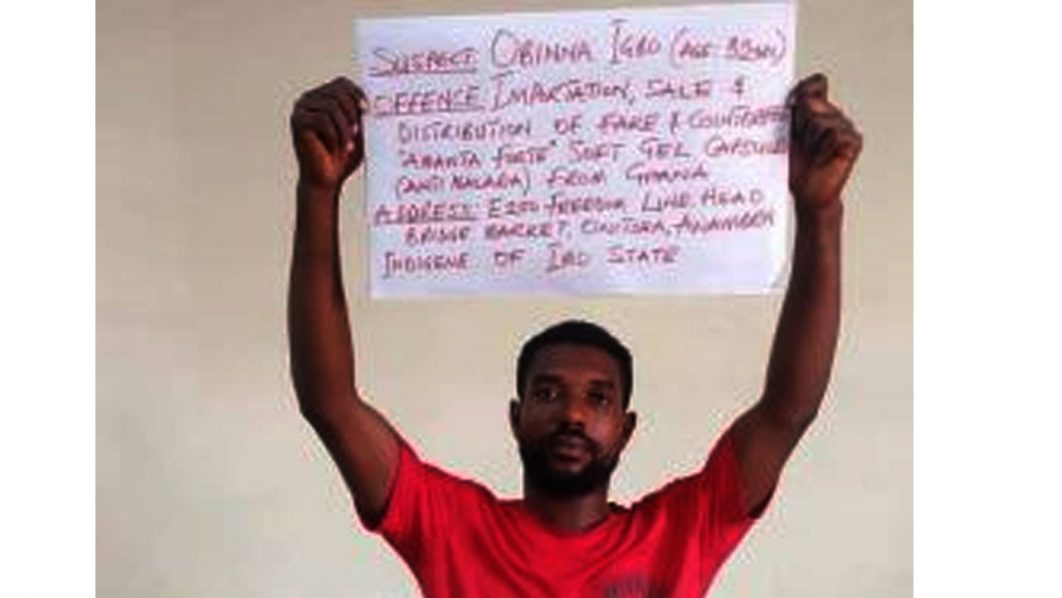 SUSPECT OBINNA IGBO (AGE
OFFENCE IMPORTATION, SALE &
DISTRIBUTION OF FAKE & COUNTERFEIT
FORTE" SOFT GEL CAPSULES
(ANTI MALARIA) FROM GHANA
ADDRESS FREEDOM LINE HEAD
BRIDGE MARKET, ONITSHA, ANAMBRA
INDIGENE OF IMO STATE